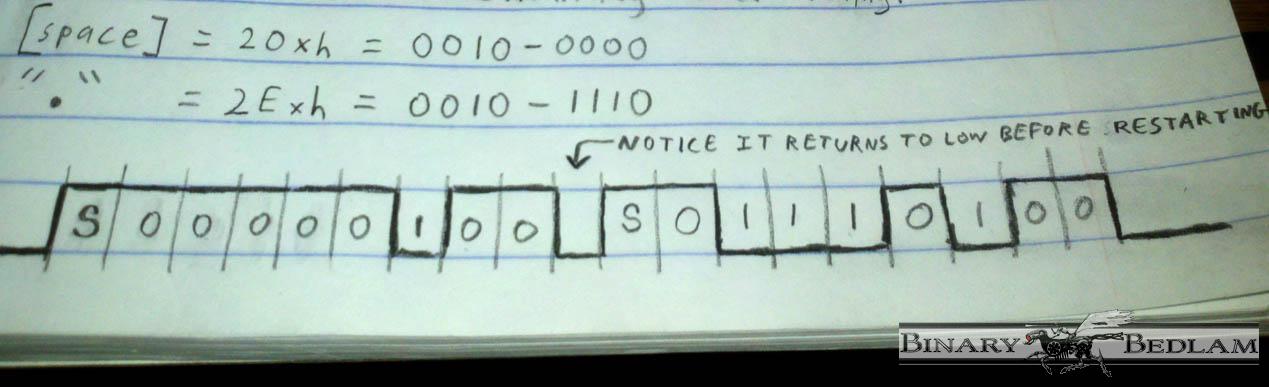 [space] = 20xh = 0010-0000
"." = 2Exh = 0010-1110
NOTICE IT RETURNS TO LOW BEFORE RESTARTING
S 0 0 0 0 0 1 0 0 S 0 1 1 1 0 1 0 0
BINARY BEDLAM